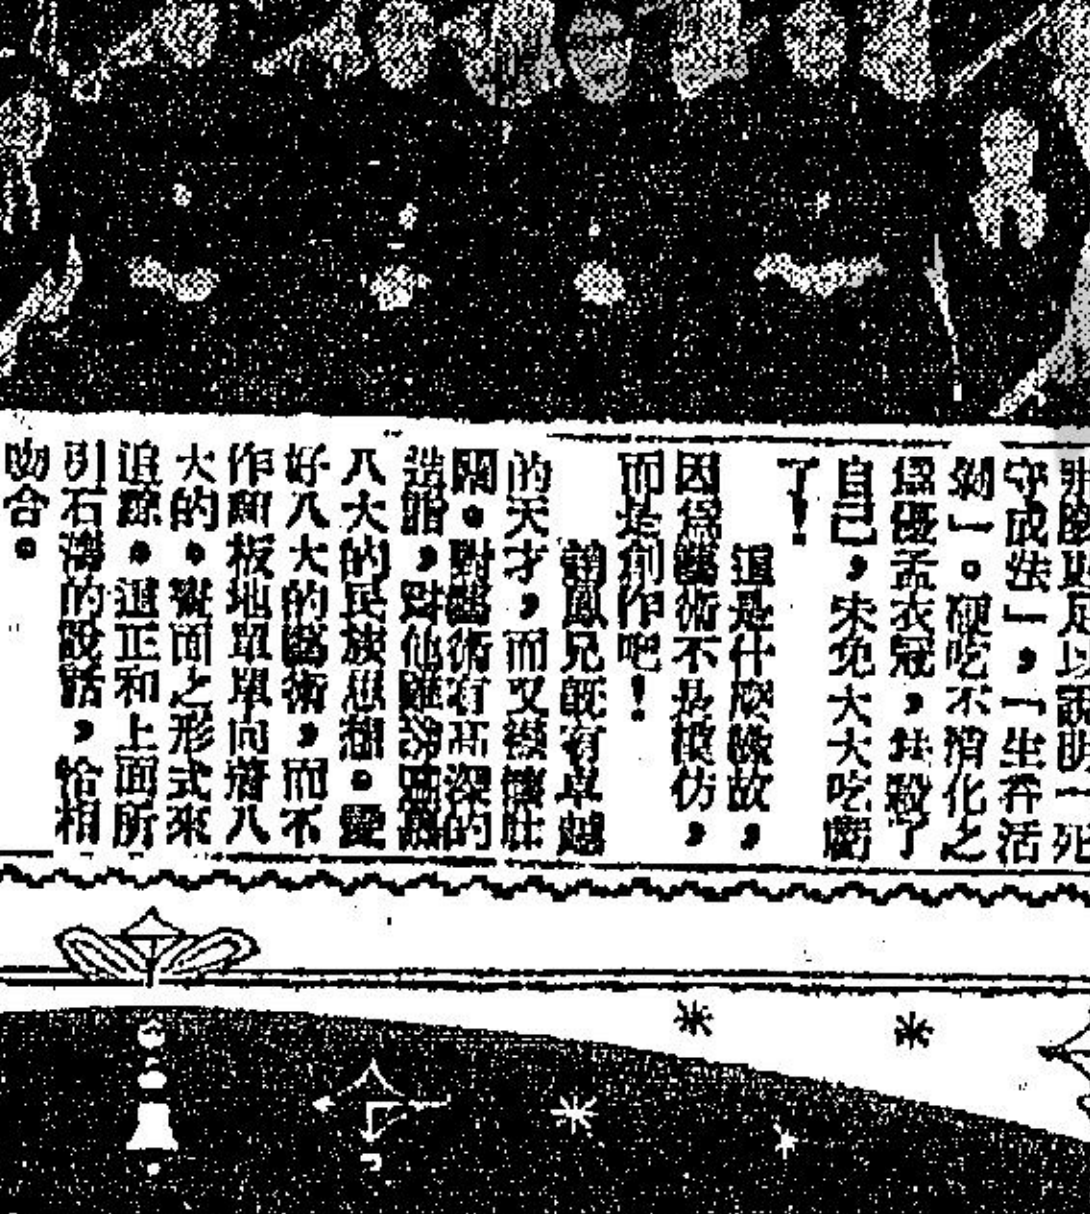 守成法」，「生吞活
剝」。硬吃不消化之
爲優孟衣冠，扶殺了
自己，未免大大吃虧
了！
這是什麽緣故，
因爲藝術不是模仿，
而是創作吧！
鳳兄既有卓越
的天才，而又襟懷壯
闊。對藝術有高深的
造詣，對他
八大的民族思想。愛
好八大的藝術，而不
作刻板地單單向着八
大的。實面之形式來
追踪。這正和上面所
引石濤的說話，恰相
吻合。